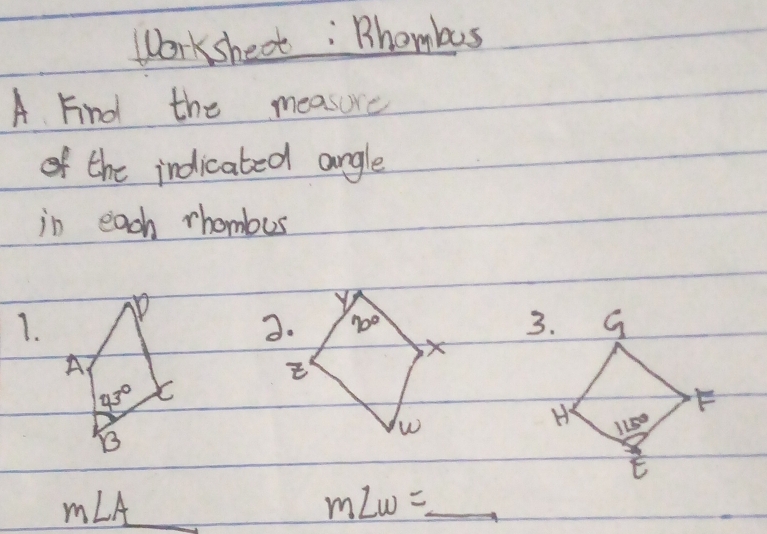 Worksheet : Rhombus
A. Find the measure
of the indicated angle
in each rhombus
1.
D
A
C
B
2.
Y
70°
Z
X
W
3.
G
H
F
115°
E
m∠A ___
m∠W = ___